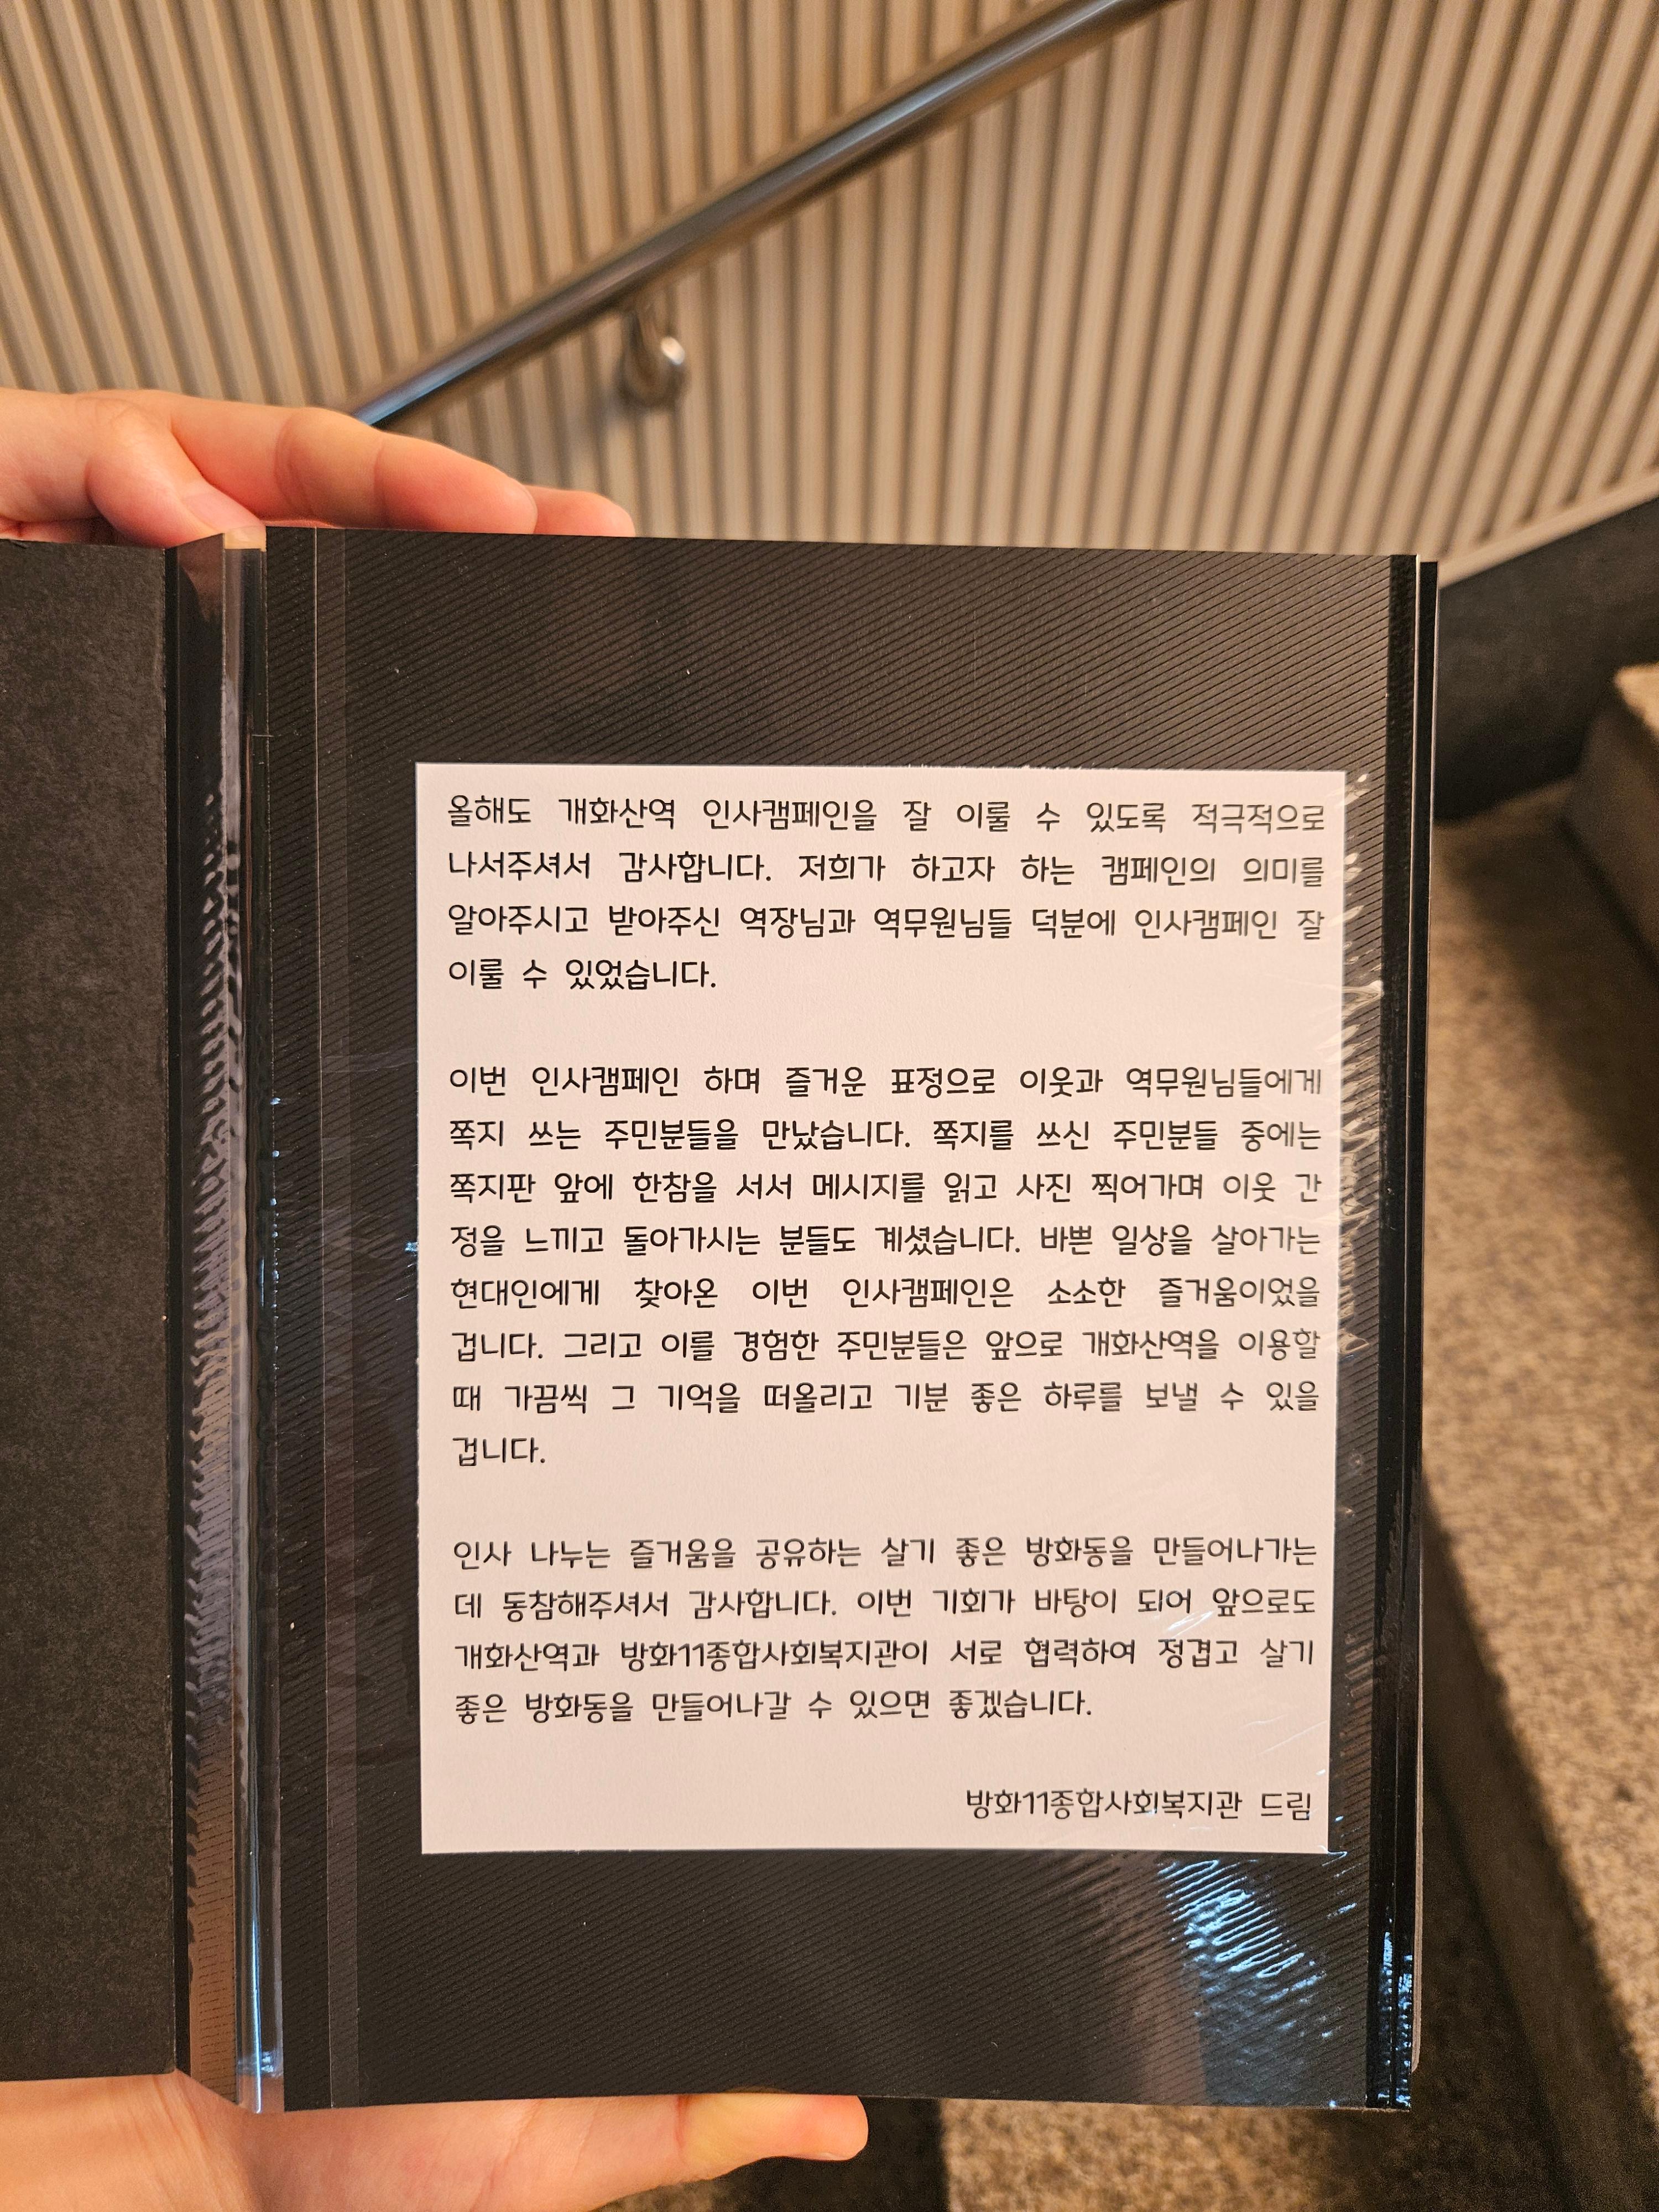 올해도 개화산역 인사캠페인을 잘 이룰 수 있도록 적극적으로
나서주셔서 감사합니다. 저희가 하고자 하는 캠페인의 의미를
알아주시고 받아주신 역장님과 역무원님들 덕분에 인사캠페인 잘
이룰 수 있었습니다.
이번 인사캠페인 하며 즐거운 표정으로 이웃과 역무원님들에게
쪽지 쓰는 주민분들을 만났습니다. 쪽지를 쓰신 주민분들 중에는
쪽지판 앞에 한참을 서서 메시지를 읽고 사진 찍어가며 이웃 간
정을 느끼고 돌아가시는 분들도 계셨습니다. 바쁜 일상을 살아가는
현대인에게 찾아온 이번 인사캠페인은 소소한 즐거움이었을
겁니다. 그리고 이를 경험한 주민분들은 앞으로 개화산역을 이용할
때 가끔씩 그 기억을 떠올리고 기분 좋은 하루를 보낼 수 있을
겁니다.
인사 나누는 즐거움을 공유하는 살기 좋은 방화동을 만들어나가는
데 동참해주셔서 감사합니다. 이번 기회가 바탕이 되어 앞으로도
개화산역과 방화11종합사회복지관이 서로 협력하여 정겹고 살기
좋은 방화동을 만들어나갈 수 있으면 좋겠습니다.
방화11종합사회복지관 드림